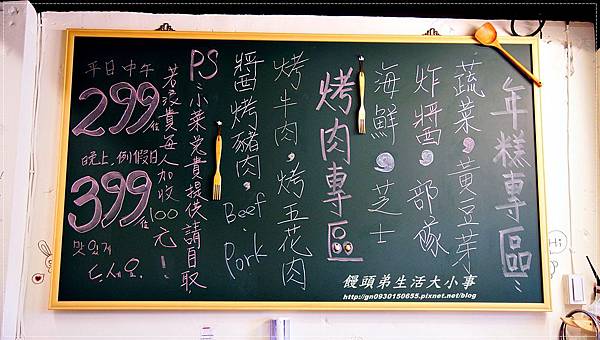 年糕專區:
蔬菜,黃豆芽
炸醬,部隊
海鮮,芝士
烤肉專區
烤牛肉,烤五花肉
醬烤豬肉, Beef. Pork
PS:小菜免費提供請自取,
若浪費每人加收100元!
平日中午
299位
晚上.例假日
399位
맛있게
드세요.
Hi
饅頭弟生活大小事
http://gn0930150655.pixnet.net/blog